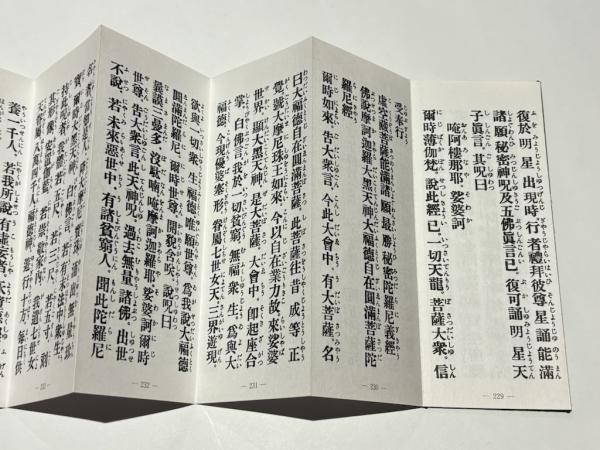 復於明星出現時行者禮拜彼尊星誦能滿
諸願秘密神呪及五佛眞言已復可誦明星天
子眞言其呪曰
唵阿樓那耶娑婆訶
爾時薄伽梵說此經已一切天龍菩薩大衆信
受奉行
虛空藏菩薩能滿諸願最勝秘密陀羅尼義經
佛說摩訶迦羅大黑天神大福德自在圓滿菩薩陀
羅尼經
爾時如來告大衆言今此大會中有大菩薩名
曰大福德自在圓滿菩薩此菩薩往昔成等正
覺號大摩尼珠王如來今以自在業力故來娑婆
世界顯大黑天神是大菩薩大會中卽起座合
掌白佛言我於一切貧窮無福衆生爲與大
福德今現優婆塞形眷屬七世女天三界遊現
欲與一切衆生福德唯願世尊爲我說大福德
圓滿陀羅尼爾時世尊開貌含咲說呪曰
曩謨三曼多沒馱喃唵摩訶迦羅耶娑婆訶爾時
世尊告大衆言此天神呪過去無量諸佛出世
不說若未來惡世中有諸貧窮人聞此陀羅尼
養一千人若我所說有虛妄
229
230
231
232